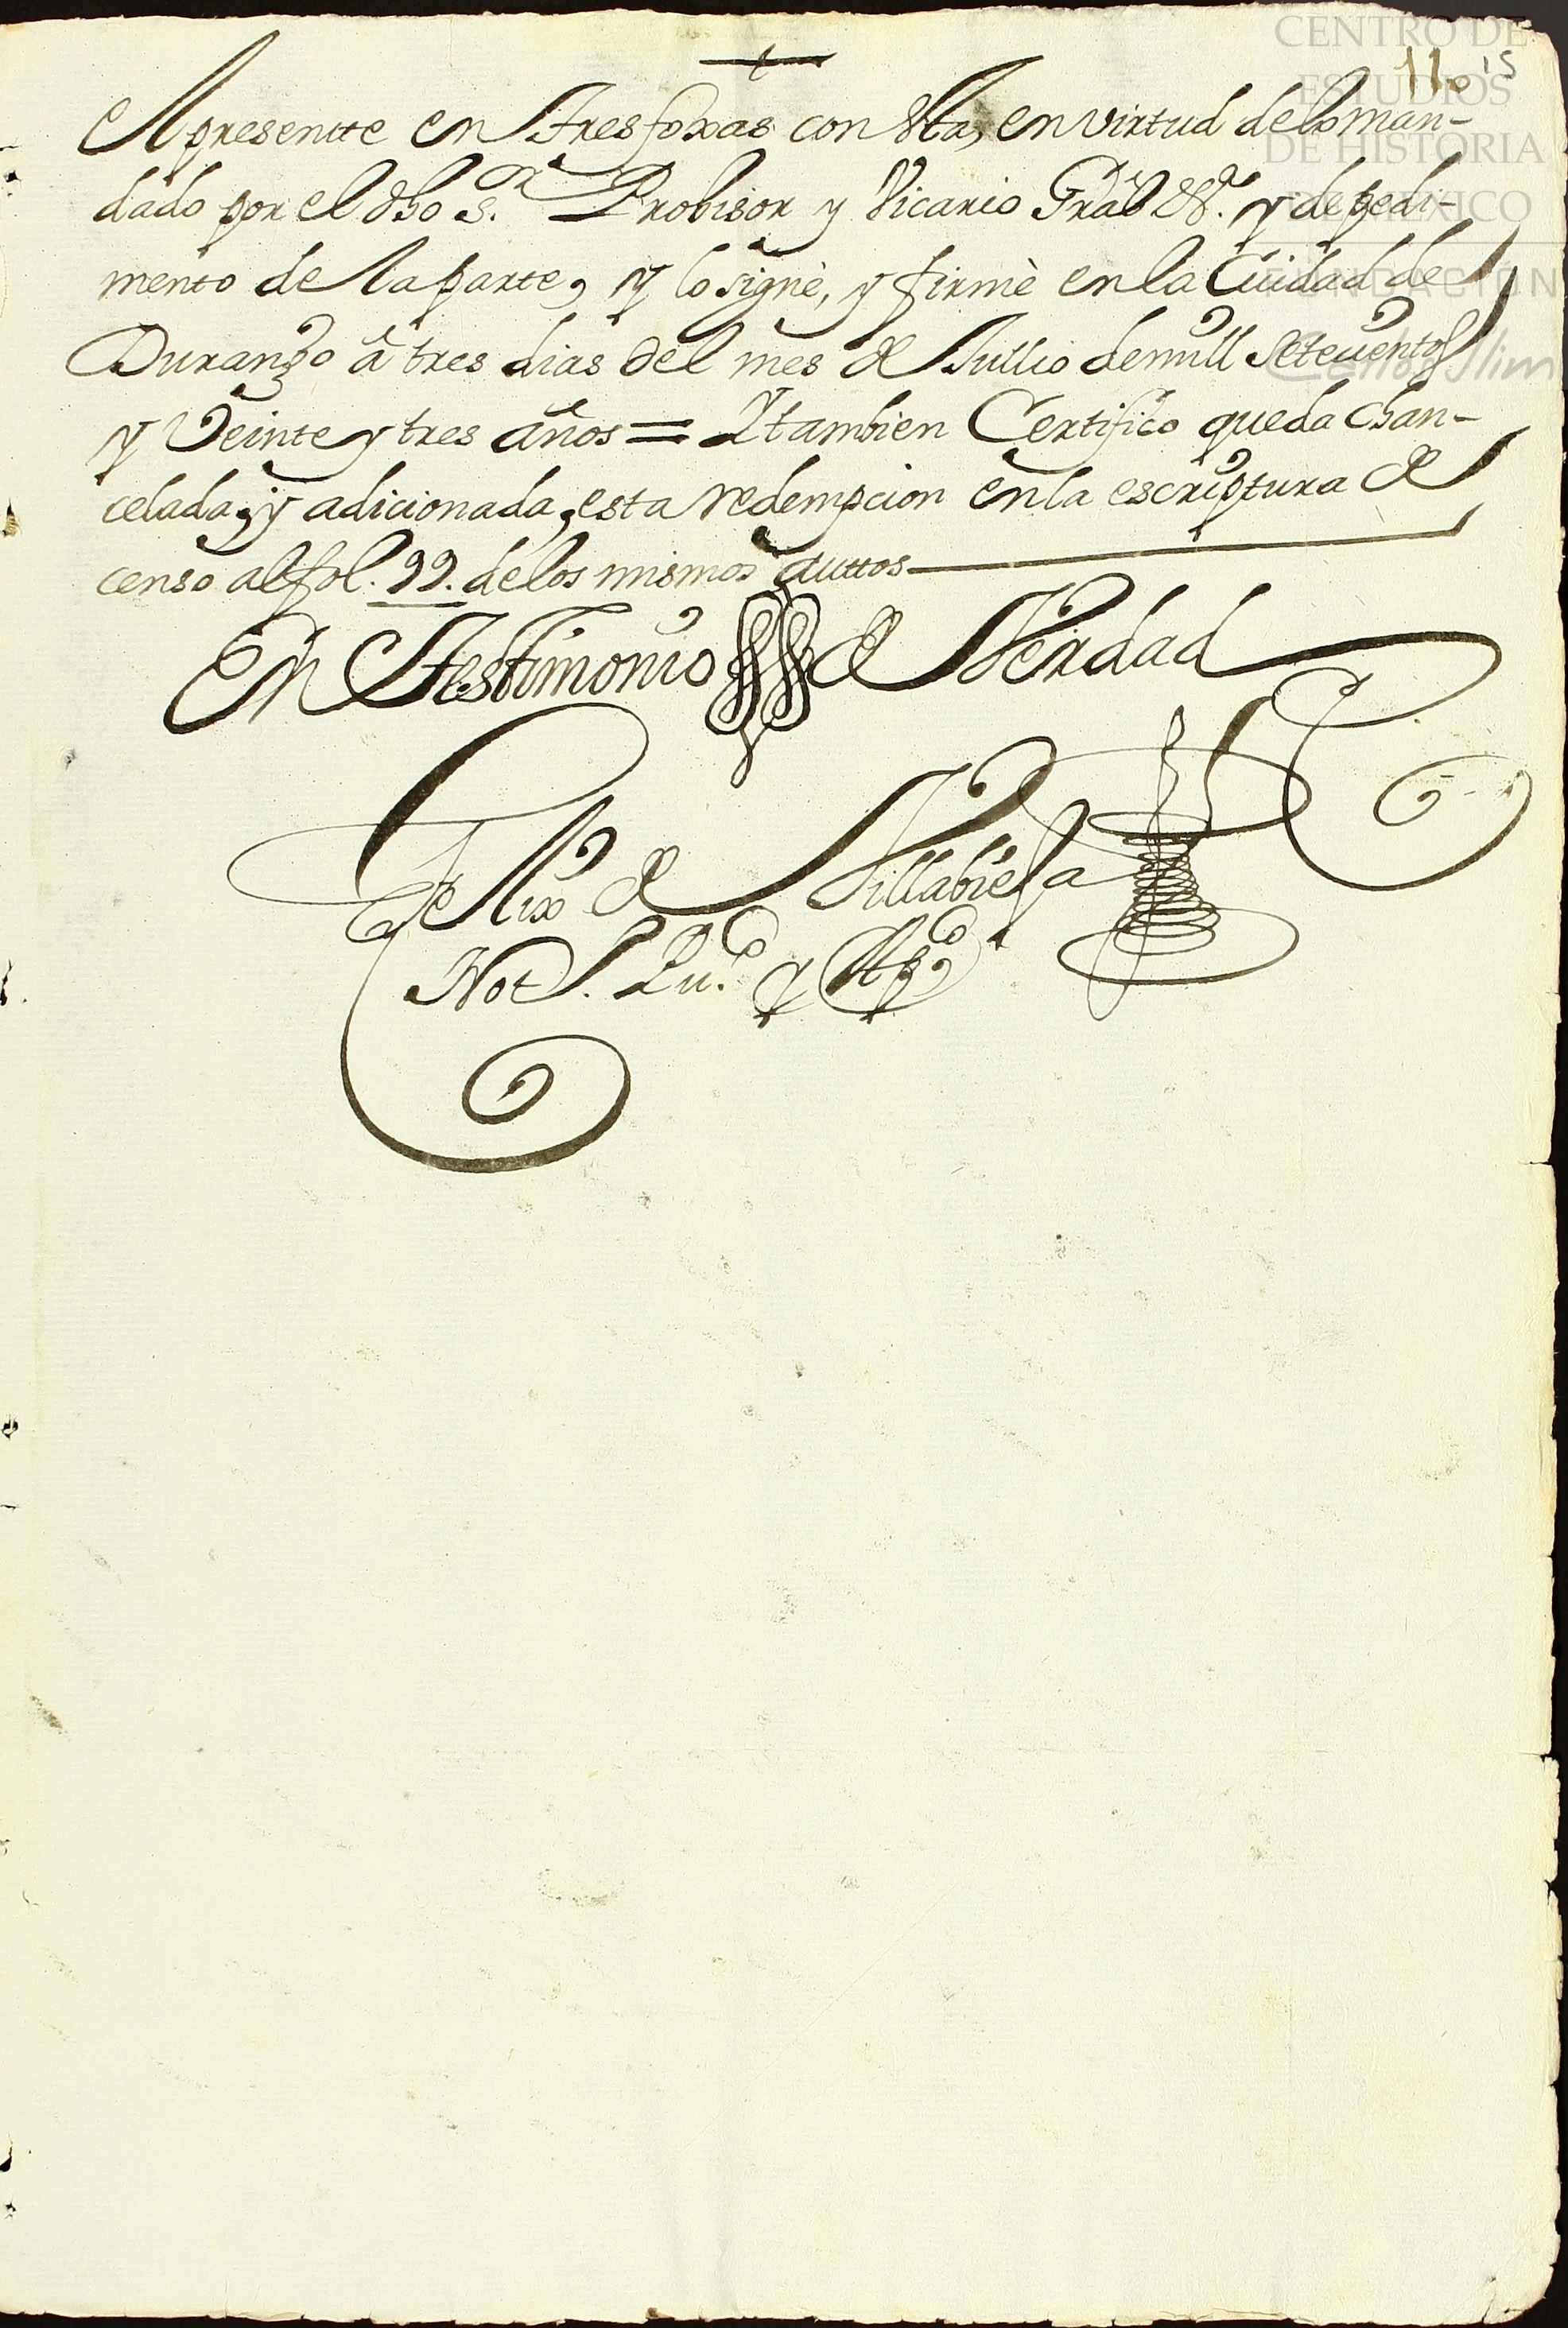 CENTRO DE
ESTUDIOS
DE HISTORIA
DE MÉXICO
FUNDACIÓN
Carlos Slim
110 15
el presentte en tres foxas con esta, en virtud de lo man-
dado por el dho s.or Probisor y Vicario Gräl &a. y de pedi-
mento de la parte, y lo signè, y firmè en la Ciüdad de
Durango â tres dias del mes de Jullio de mill setecientos
y Veinte y tres años = Y tambien Certifico queda chan-
celada, y adicionada, esta redempcion en la escriptura de
censo al fol. 99. de los mismos auttos
En Testimonio de Verdad
Felix de Villabiesa
Not. Pu.co y App.co